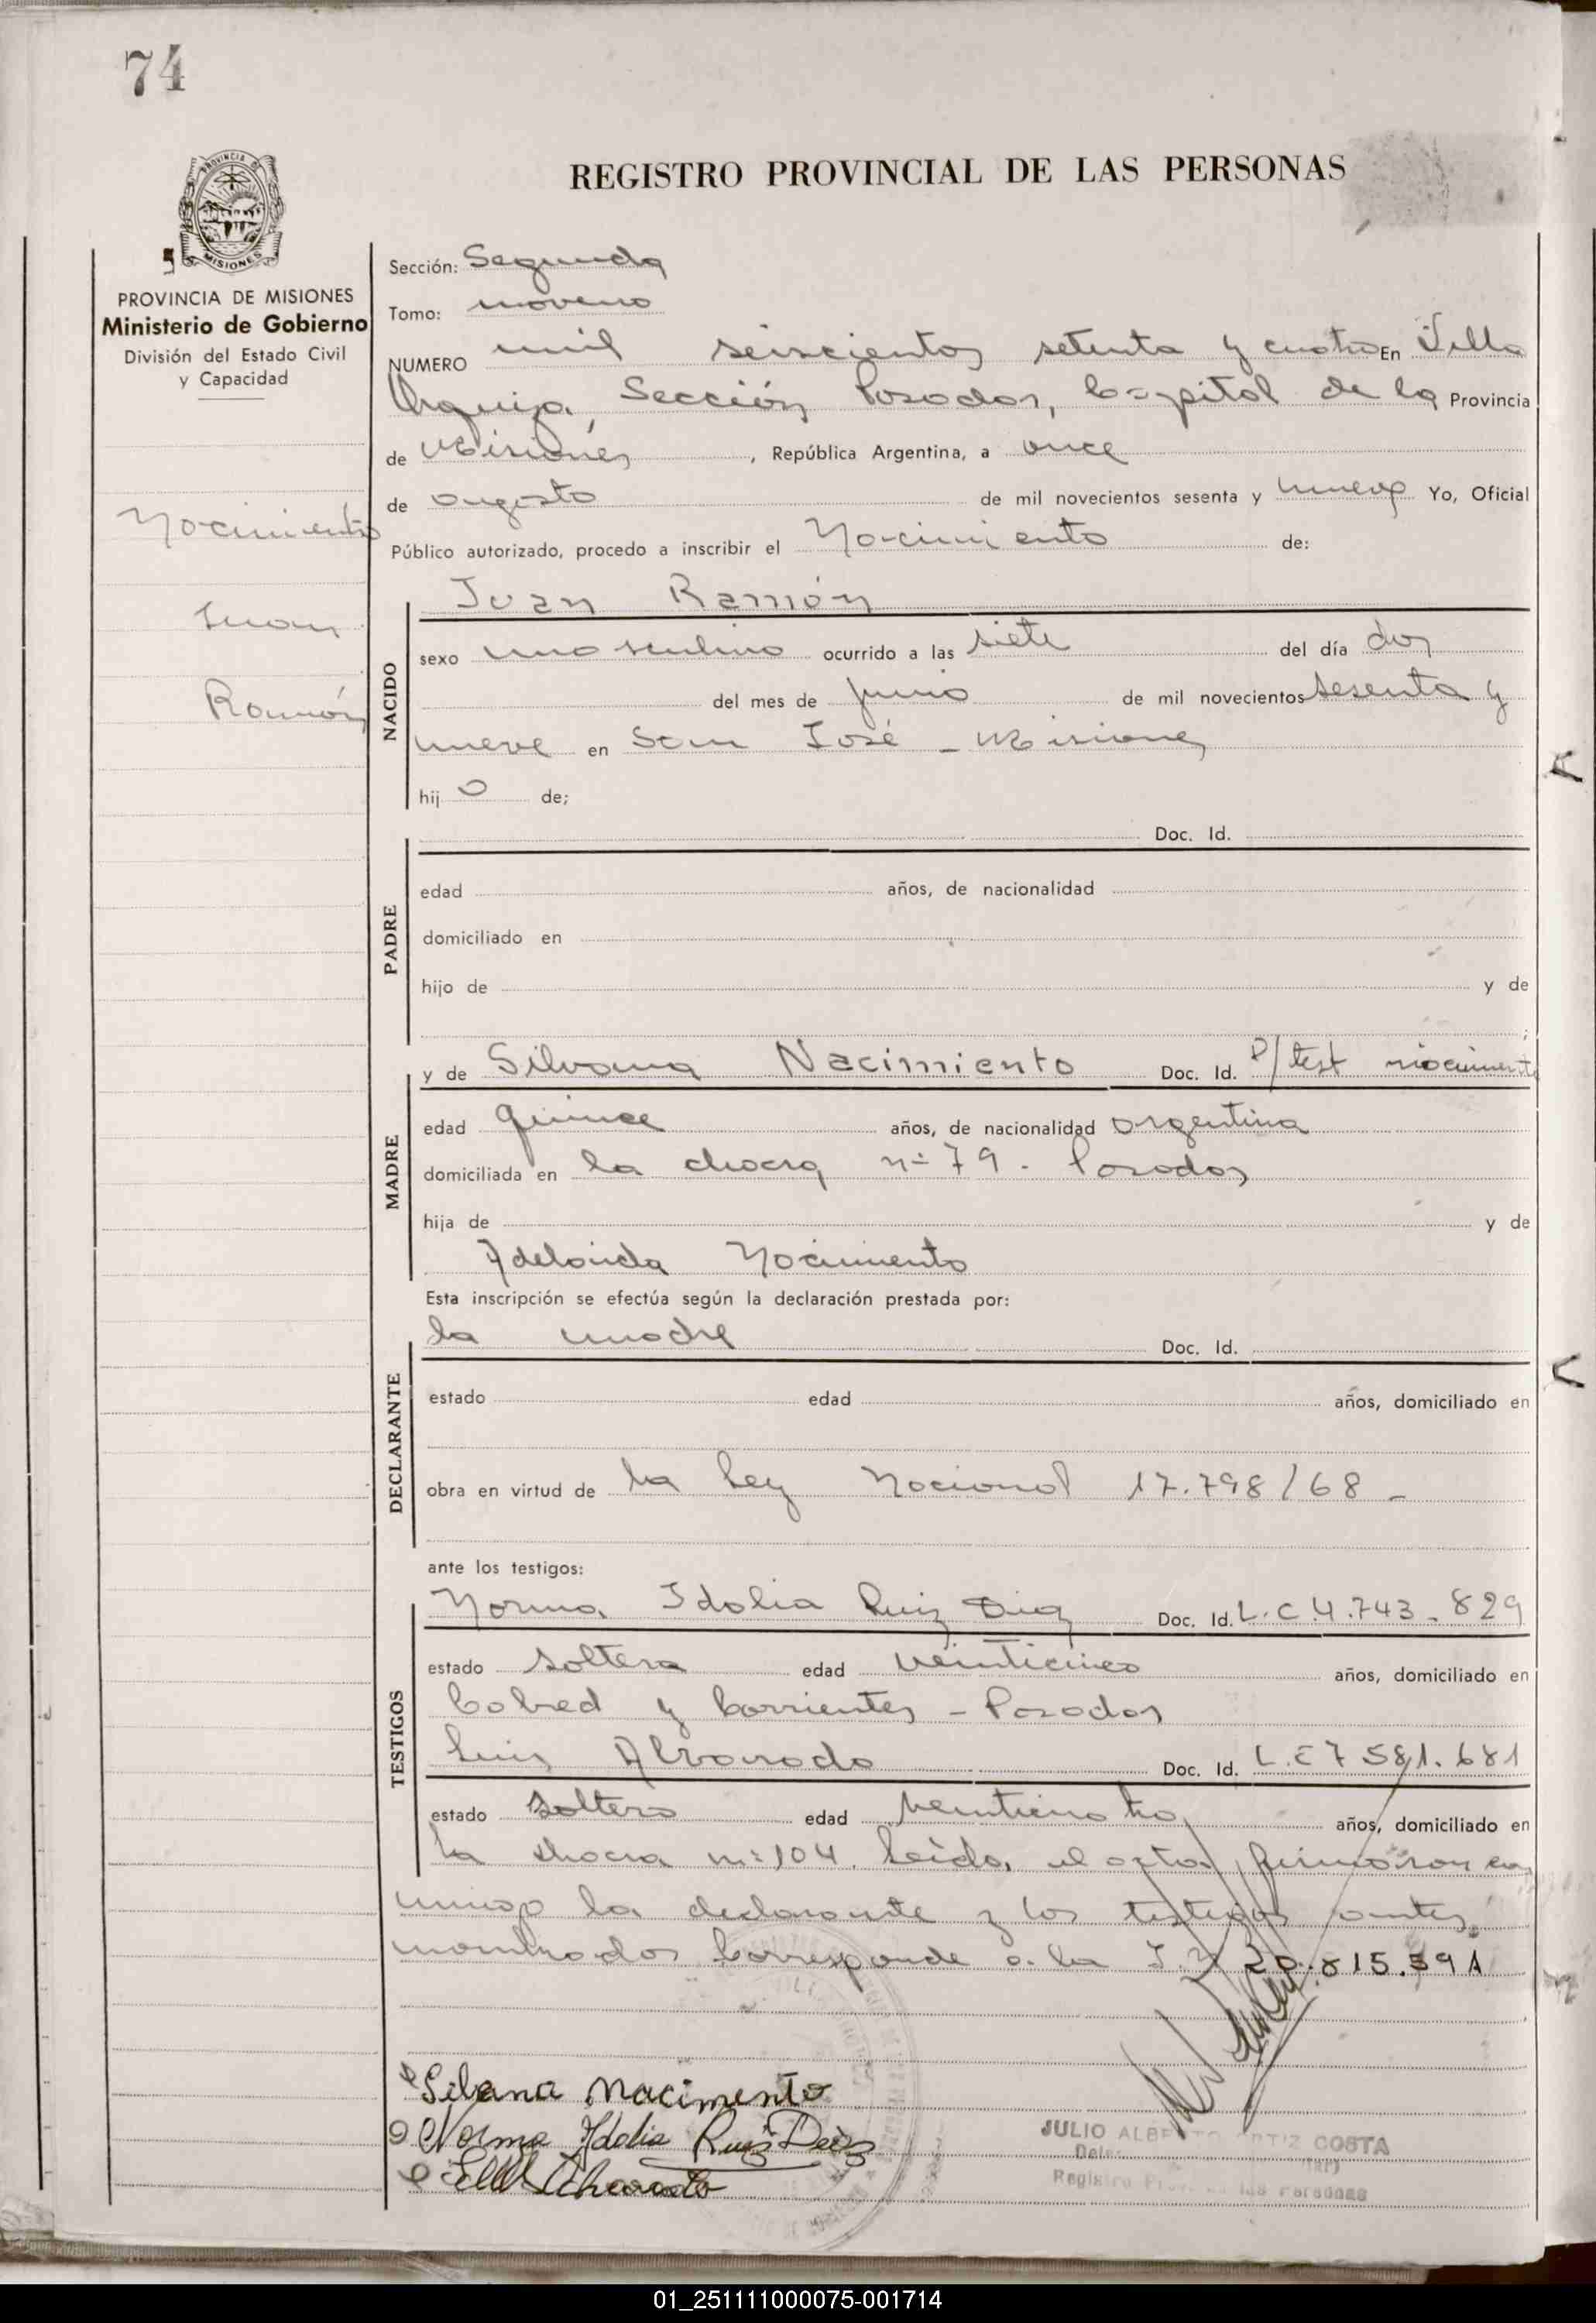 74
REGISTRO PROVINCIAL DE LAS PERSONAS
PROVINCIA DE MISIONES
Ministerio de Gobierno
División del Estado Civil
y Capacidad
Nacimiento
Juan
Ramón
Sección: Segunda
Tomo: noveno
NUMERO mil seiscientos setenta y cuatro En Villa
Urquiza, Sección Posadas, Capital de la Provincia
de Misiones, República Argentina, a once
de agosto de mil novecientos sesenta y nueve Yo, Oficial
Público autorizado, procedo a inscribir el Nacimiento de:
Juan Ramón
NACIDO
sexo masculino ocurrido a las siete del día dos
del mes de junio de mil novecientos sesenta y
nueve en San José - Misiones
hij o de;
Doc. Id.
PADRE
edad años, de nacionalidad
domiciliado en
hijo de y de
y de Silvana Nacimiento Doc. Id. P/test nacimiento
MADRE
edad quince años, de nacionalidad argentina
domiciliada en la chacra nº 79 - Posadas
hija de y de
Adelaida Nacimiento
Esta inscripción se efectúa según la declaración prestada por:
la madre Doc. Id.
DECLARANTE
estado edad años, domiciliado en
obra en virtud de la Ley Nacional 17.798/68 -
ante los testigos:
Norma Idolia Ruiz Diaz Doc. Id. L.C 4.743.829
TESTIGOS
estado soltera edad veinticinco años, domiciliado en
Cabred y Corrientes - Posadas
Luis Alvarado Doc. Id. L.E 7 581.681
estado soltero edad veinticuatro años, domiciliado en
la chacra nº 104. Leída el acta, firmaron con
migo la declarante y los testigos antes
nombrados Corresponde a la 20.815.591
Silvana Nacimento
Norma Idolia Ruiz Diaz
Alvarado
JULIO ALBERTO ORTIZ COSTA
Registro Prov. de las Personas
01_251111000075-001714